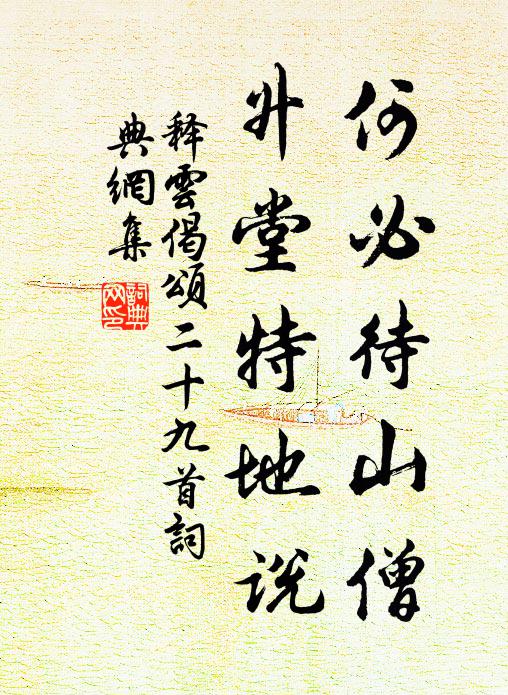 何必待山僧
升堂特地说
释雲偈頌二十九首詞
典網集
詞典
网印